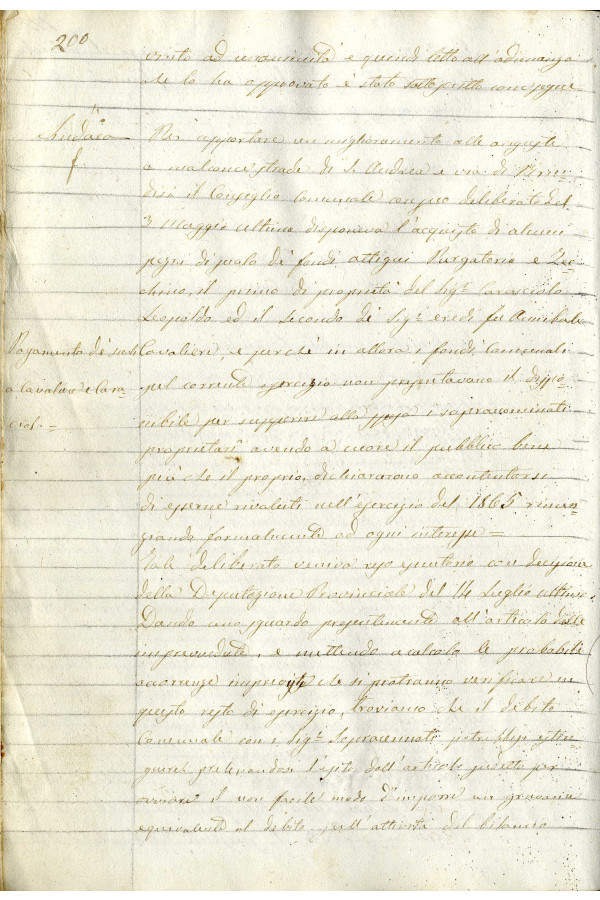 200
esunto ad unanimità e quindi letto all'adunanza
che lo ha approvato è stato sottoscritto come segue
Sindaco
f
Per apportare un miglioramento alle anguste
e malconce strade di S. Andrea e via di Brin
disi il Consiglio Comunale con suo deliberato del
3 Maggio ultimo disponeva l'acquisto di alcuni
pezzi di suolo de' fondi attigui Purgatorio e
il primo di proprietà del Sigr. Caracciolo
Leopoldo ed il secondo de' Sigri eredi fu Annibale
Pagamento de' suoli
a Cavalieri e Cara
ciol. =
Cavalieri, e perchè in allora i fondi Comunali
pel corrente esercizio non presentavano il dispo
nibile per supperire alla spesa i sopranominati
proprietarj avendo a cuore il pubblico bene
più che il proprio, dichiararono accontentarsi
di esserne rivaluti nell'esercizio del 1865 rinun
ziando formalmente ad ogni interesse =
Tale deliberato veniva reso esecutorio con decisione
della Deputazione Provinciale del 14 Luglio ultimo
Dando uno sguardo presentemente all'articolo delle
imprevedute, e mettendo a calcolo le probabili
occorrenze impreviste che si potranno verificare in
questo resto di esercizio, troviamo che il debito
Comunale con i Sigri Sopracennati potrebbesi estin
guere prelevandosi l'esito dall'articolo
ovviare il non facile modo d'imporre un gravame
equivalente al debito sull'attività del bilancio